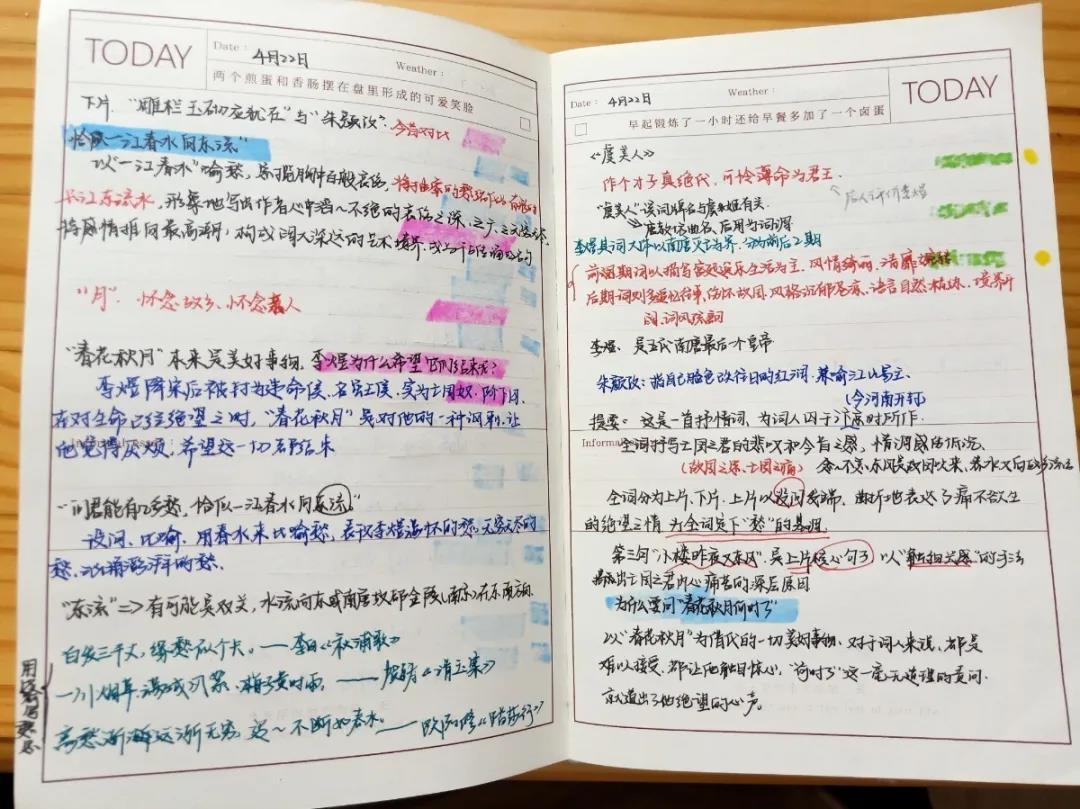 TODAY
Date: 4月22日
Weather:
两个煎蛋和香肠摆在盘里形成的可爱笑脸
下片."雕栏玉砌应犹在"与"朱颜改".今昔对比
恰似一江春水向东流"
以"一江春水"喻愁,
长江东流水,形象地写出作者心中
将感情推向最高潮,构成阔大深远的艺术境界,
"月".怀念故乡、怀念
"春花秋月"本来是美好事物,李煜为什么希望它们结束呢?
李煜降宋后被封为违命侯,名为王侯,实为亡国奴,阶下囚,
在对生命已经绝望之时,"春花秋月"是对他的一种讽刺,让
他觉得厌烦,希望这一切都结束
"问君能有几多愁,恰似一江春水向东流。"
设问、比喻.用春水来比喻愁,表现李煜满怀的愁,无穷无尽的
愁,汹涌澎湃的愁.
"东流"=>有可能是双关,水流向东 南唐故都金陵(南京)在东南方向.
白发三千丈,缘愁似个长.——李白《秋浦歌》
一川烟草,满城风絮,梅子黄时雨.——贺铸《青玉案》
离愁渐远渐无穷,迢~不断如春水.——欧阳修《踏莎行》
TODAY
Date: 4月22日
Weather:
早起锻炼了一小时还给早餐多加了一个卤蛋
《虞美人》
作个才子真绝代,可怜薄命为君王.
后人评价李煜
"虞美人"该词牌名与虞姬有关.
唐教坊曲名,后用为词牌
李煜其词大体以南唐灭亡为界,分为前后2期
前期词以描写宫廷享乐生活为主,风情绮丽,清
后期词则多追忆往事,伤怀故国,风格沉郁悲痛,语言自然精炼,境界开
阔,词风疏朗
李煜,是五代南唐最后一个皇帝
朱颜改:指自己脸色改往日的红润.兼喻江山易主.
(今河南开封)
提要:这是一首抒情词,为词人囚于汴京时所作.
全词抒写亡国之君的悲叹和今昔之感,情调感伤
(故国之思、亡国之痛)
全词分为上片、下片.上片以设问发端,曲折地表达了痛不欲生
的绝望之情,为全词定下"愁"的基调.
第三句"小楼昨夜又东风",是上片核心句子,以 的手法
揭示出亡国之君内心痛苦的深层原因
为什么要问"春花秋月何时了"
以"春花秋月"为借代的一切美好事物,对于词人来说,都是
难以接受,都让他触目惊心,"何时了"这一毫无道理的责问.
就道出了他绝望的心声.